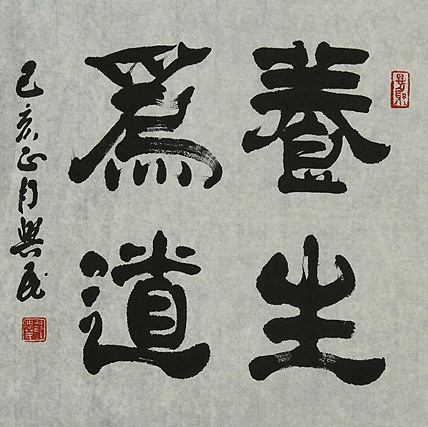 養生
爲道
己亥正月興民